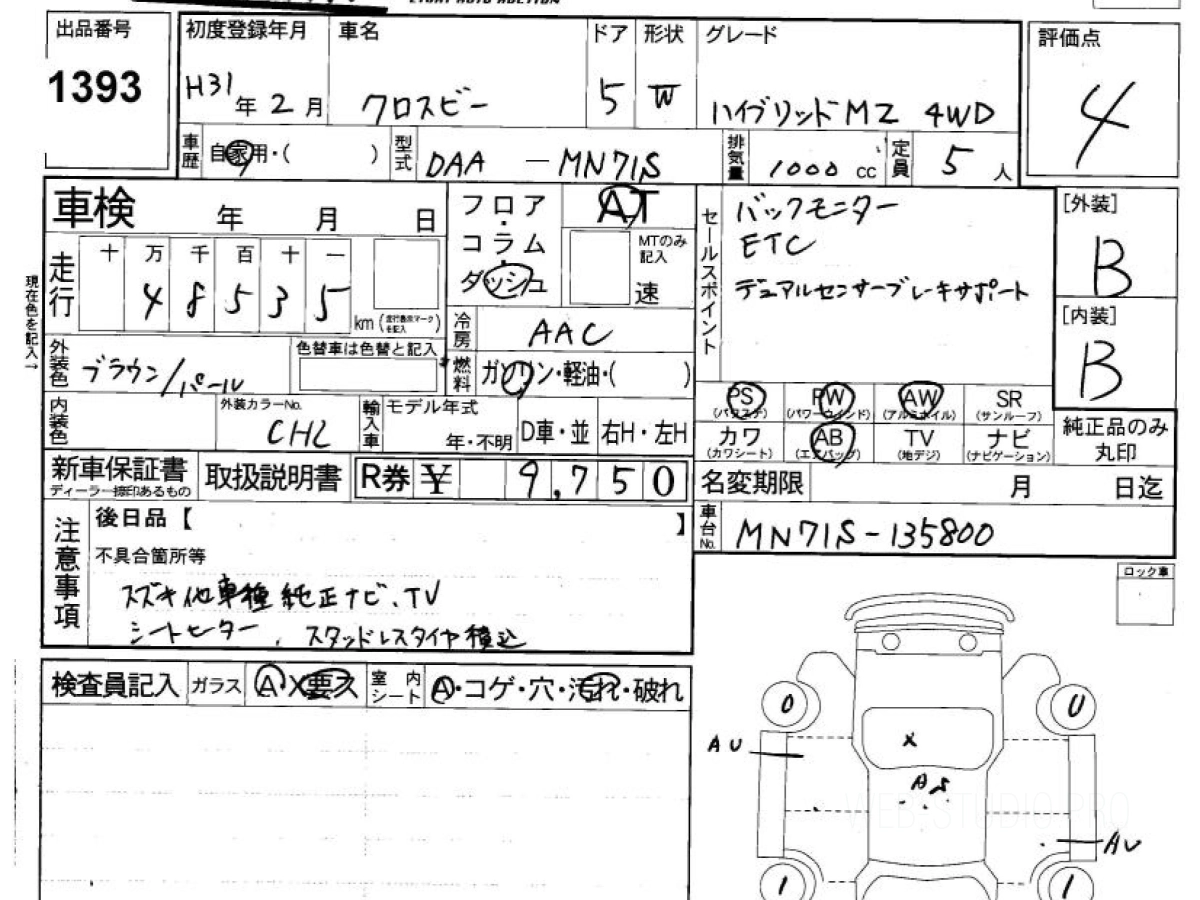 EIGHT AUTO AUCTION
出品番号
1393
初度登録年月
H31年2月
車名
クロスビー
ドア
5
形状
W
グレード
ハイブリッドMZ 4WD
評価点
4
車歴
自家用・( )
型式
DAA - MN71S
排気量
1000 cc
定員
5 人
車検 年 月 日
走行
十 万 千 百 十 一
4 8 5 3 5
km (走行表示マークを記入)
現在色を記入→
フロア・コラム・ダッシュ
AT
MTのみ記入
速
セールスポイント
バックモニター
ETC
デュアルセンサーブレーキサポート
[外装]
B
[内装]
B
冷房
AAC
燃料
ガソリン・軽油・( )
外装色
ブラウン/パール
色替車は色替と記入
内装色
外装カラーNo.
CHL
輸入車
モデル年式
年・不明
D車・並
右H・左H
PS (パワステ)
PW (パワーウインド)
AW (アルミホイル)
SR (サンルーフ)
カワ (カワシート)
AB (エアバッグ)
TV (地デジ)
ナビ (ナビゲーション)
純正品のみ丸印
新車保証書
ディーラー捺印あるもの
取扱説明書
R券 ¥ 9,750
名変期限 月 日迄
車台No.
MN71S-135800
注意事項
後日品【 】
不具合箇所等
スズキ他車種純正ナビ、TV
シートヒーター、スタッドレスタイヤ積込
ロック車
検査員記入
ガラス
A・X要ス
室内シート
A・コゲ・穴・汚れ・破れ
0
U
AU
X
AS
AU
1
1
WEB STUDIO PRO